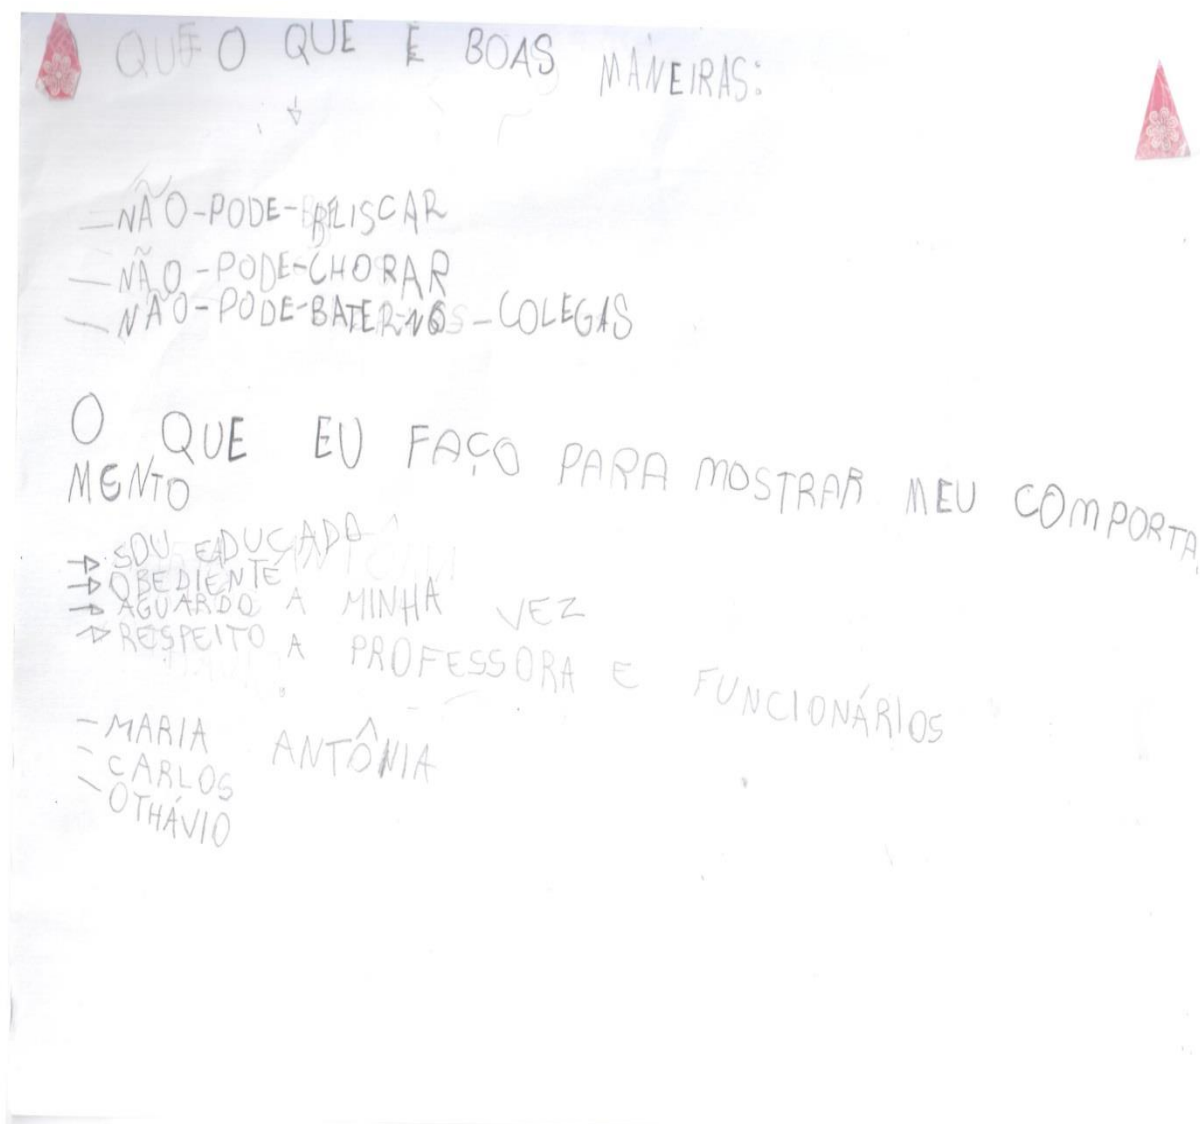 QUE O QUE É BOAS MANEIRAS:
—NÃO-PODE-BELISCAR
—NÃO-PODE-CHORAR
—NÃO-PODE-BATER-NOS-COLEGAS
O QUE EU FAÇO PARA MOSTRAR MEU COMPORTA
MENTO
→ SOU EDUCADO
→ OBEDIENTE
→ AGUARDO A MINHA VEZ
→ RESPEITO A PROFESSORA E FUNCIONÁRIOS
- MARIA ANTÔNIA
- CARLOS
- OTHÁVIO